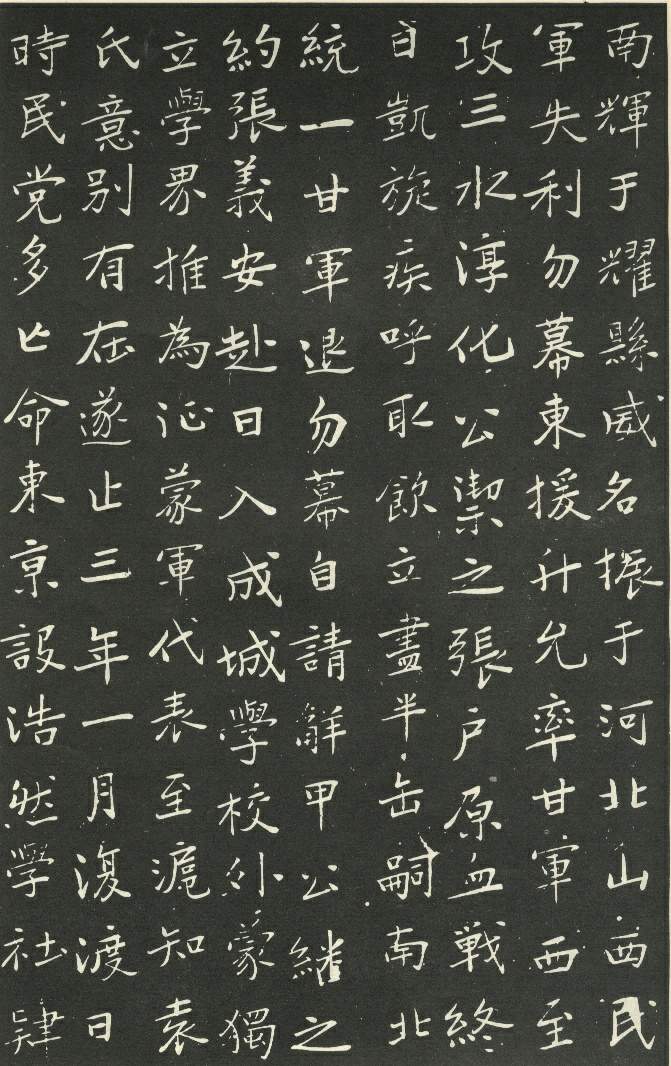 南輝于耀縣威名振于河北山西民
軍失利勿幕東援升允率甘軍西至
攻三水淳化公禦之張戶原血戦終
日凱旋疾呼取飲立盡半缶嗣南北
統一甘軍退勿幕自請辭甲公繼之
約張義安赴日入成城學校外蒙獨
立學界推為征蒙軍代表至滬知袁
氏意別有在遂止三年一月復渡日
時民党多亡命東京設浩然学社肄